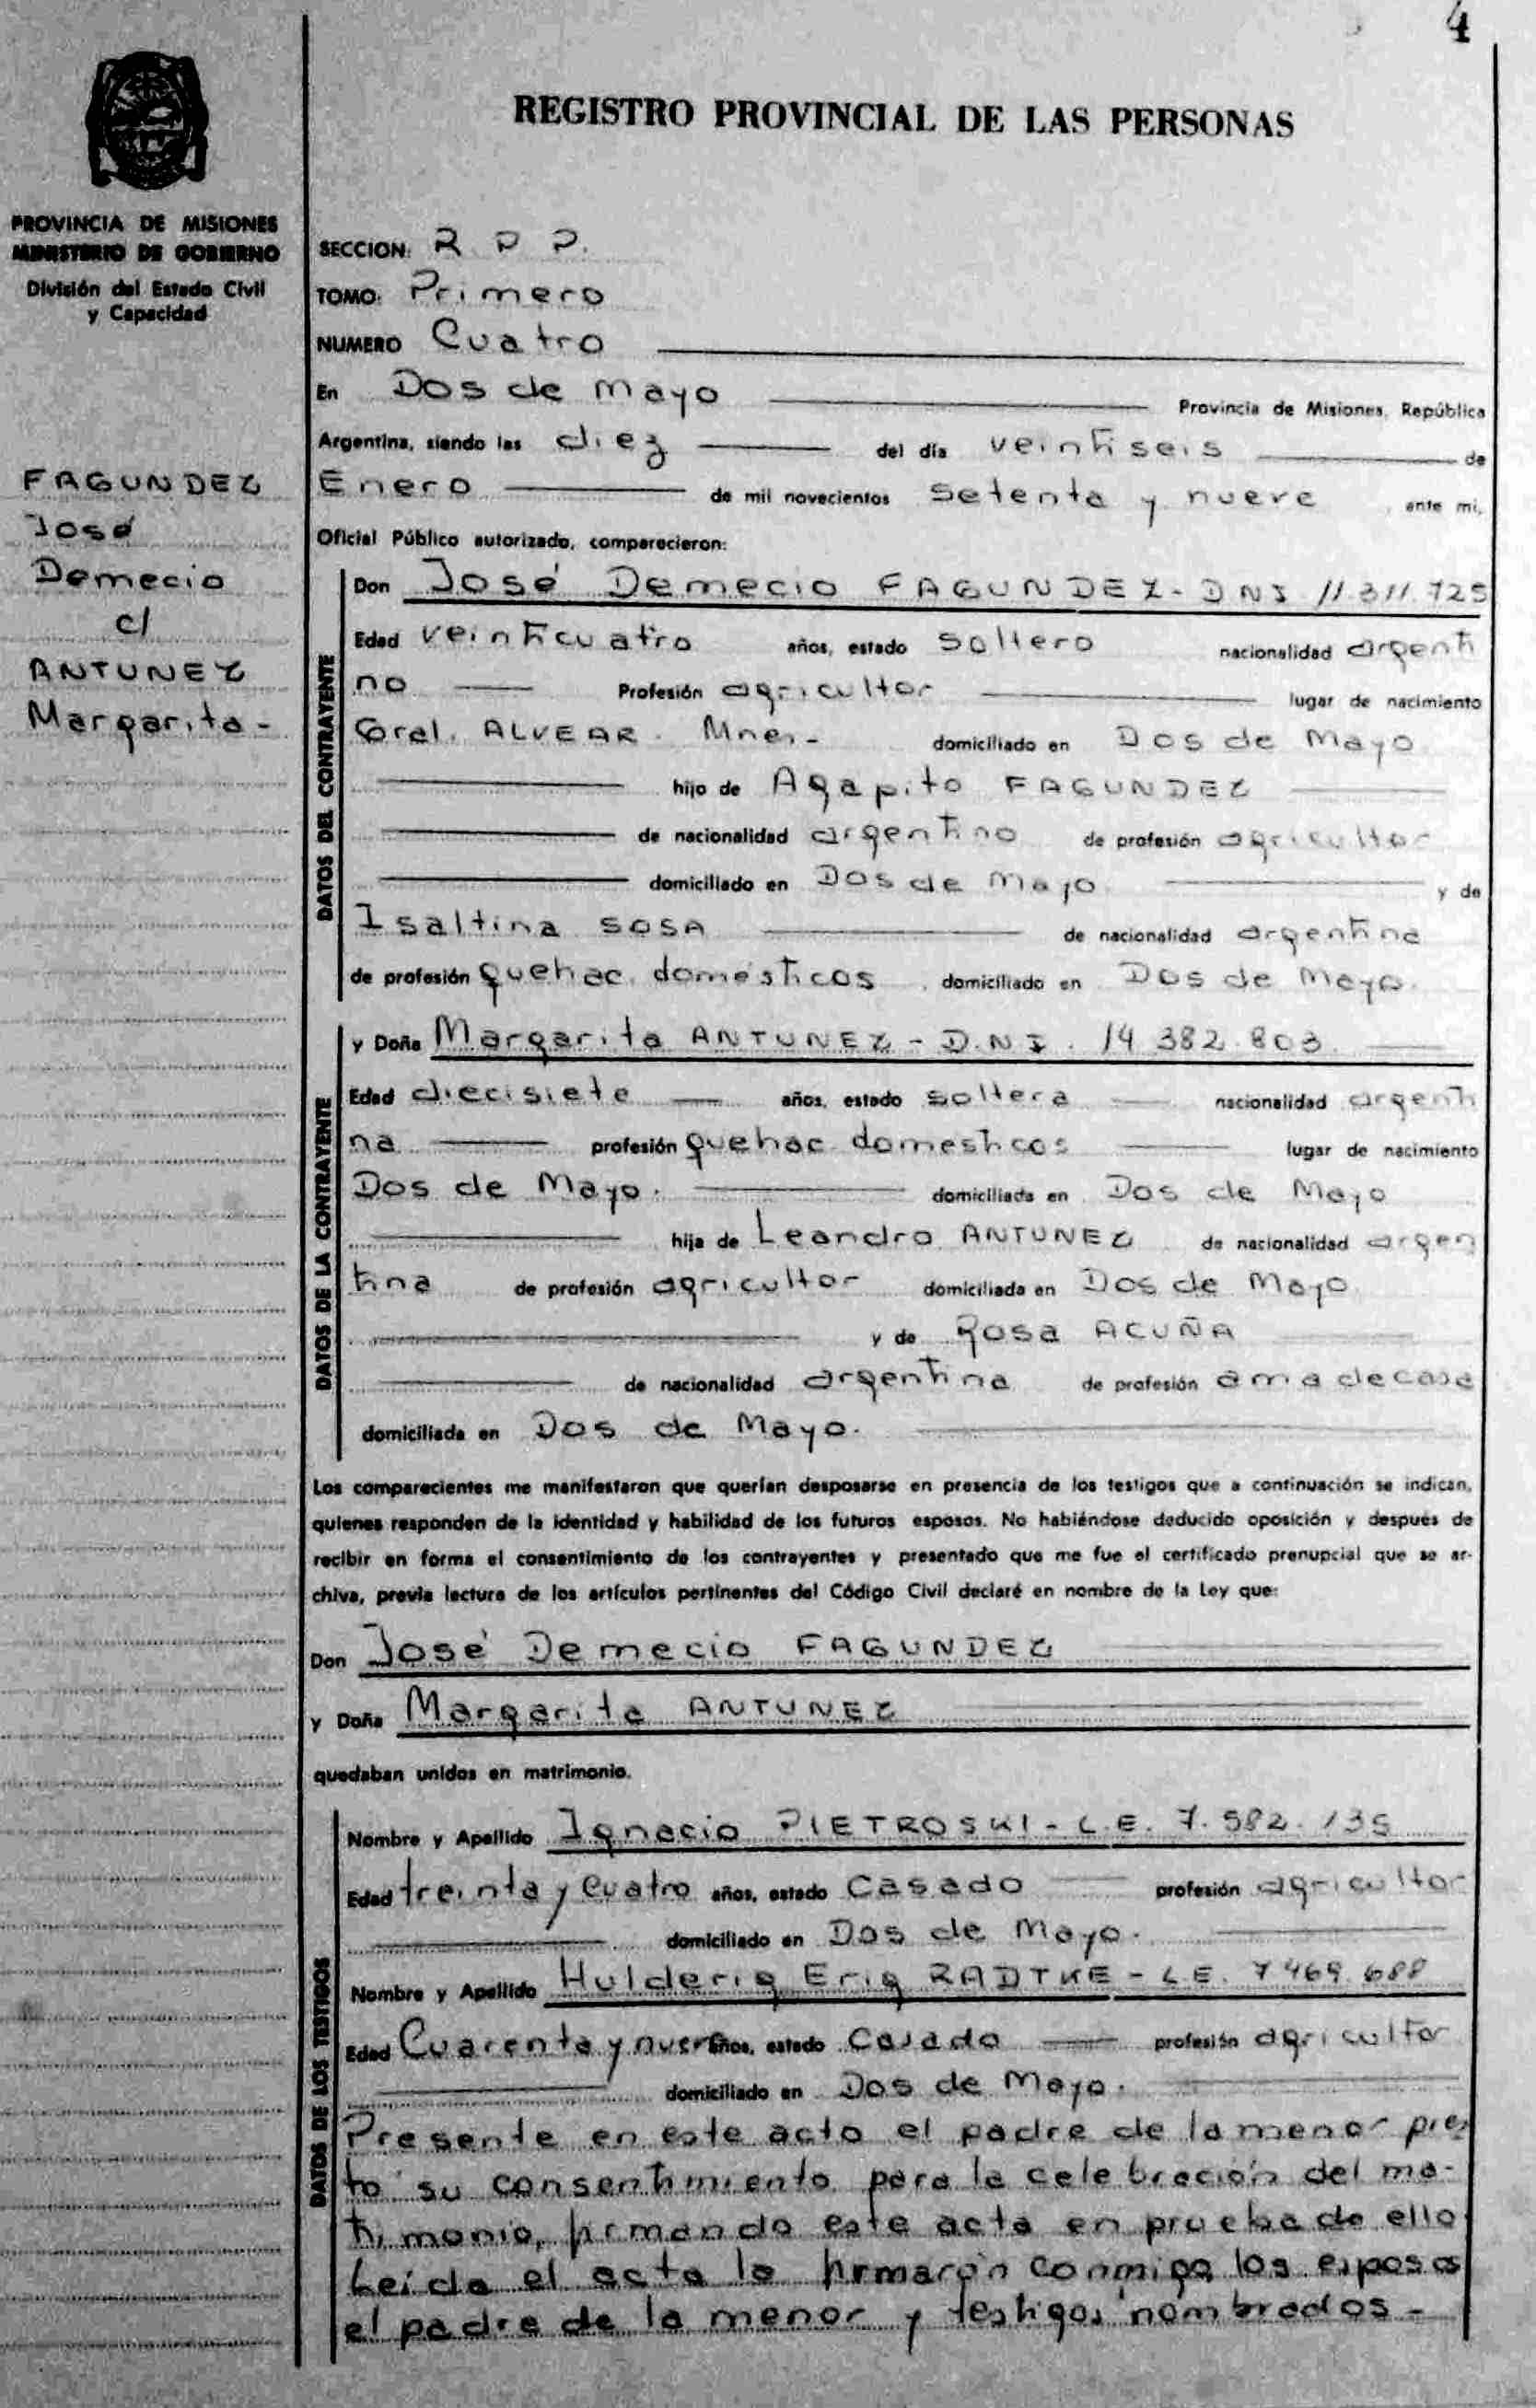 4
REGISTRO PROVINCIAL DE LAS PERSONAS
PROVINCIA DE MISIONES
MINISTERIO DE GOBIERNO
División del Estado Civil
y Capacidad
FAGUNDEZ
José
Demecio
c/
ANTUNEZ
Margarita-
SECCION: R P P.
TOMO: Primero
NUMERO Cuatro
En Dos de Mayo Provincia de Misiones, República
Argentina, siendo las diez del día veintiseis de
Enero de mil novecientos setenta y nueve ante mi,
Oficial Público autorizado, comparecieron:
DATOS DEL CONTRAYENTE
Don José Demecio FAGUNDEZ- DNI 11.311.725
Edad veinticuatro años, estado soltero nacionalidad argenti
no Profesión agricultor lugar de nacimiento
Gral. ALVEAR. Mnes.- domiciliado en Dos de Mayo
hijo de Agapito FAGUNDEZ
de nacionalidad argentino de profesión agricultor
domiciliado en Dos de Mayo y de
Isaltina SOSA de nacionalidad argentina
de profesión quehac. domésticos domiciliado en Dos de Mayo.
DATOS DE LA CONTRAYENTE
y Doña Margarita ANTUNEZ - D.N.I. 14.382.803
Edad diecisiete años, estado soltera nacionalidad argenti
na profesión quehac. domesticos lugar de nacimiento
Dos de Mayo. domiciliada en Dos de Mayo
hija de Leandro ANTUNEZ de nacionalidad argen
tina de profesión agricultor domiciliada en Dos de Mayo
y de Rosa ACUÑA
de nacionalidad argentina de profesión ama de casa
domiciliada en Dos de Mayo.
Los comparecientes me manifestaron que querían desposarse en presencia de los testigos que a continuación se indican,
quienes responden de la identidad y habilidad de los futuros esposos. No habiéndose deducido oposición y después de
recibir en forma el consentimiento de los contrayentes y presentado que me fue el certificado prenupcial que se ar-
chiva, previa lectura de los artículos pertinentes del Código Civil declaré en nombre de la Ley que:
Don José Demecio FAGUNDEZ
y Doña Margarita ANTUNEZ
quedaban unidos en matrimonio.
DATOS DE LOS TESTIGOS
Nombre y Apellido Ignacio PIETROSKI - L.E. 7.582.135
Edad treinta y cuatro años, estado casado profesión agricultor
domiciliado en Dos de Mayo.
Nombre y Apellido Hulderig Erig RADTKE - L.E. 7.469.688
Edad Cuarenta y nueve años, estado casado profesión agricultor
domiciliado en Dos de Mayo.
Presente en este acto el padre de la menor pres
tó su consentimiento para la celebración del ma-
trimonio, firmando este acta en prueba de ello
Leída el acta la firmarón conmigo los esposos
el padre de la menor y testigos nombrados-